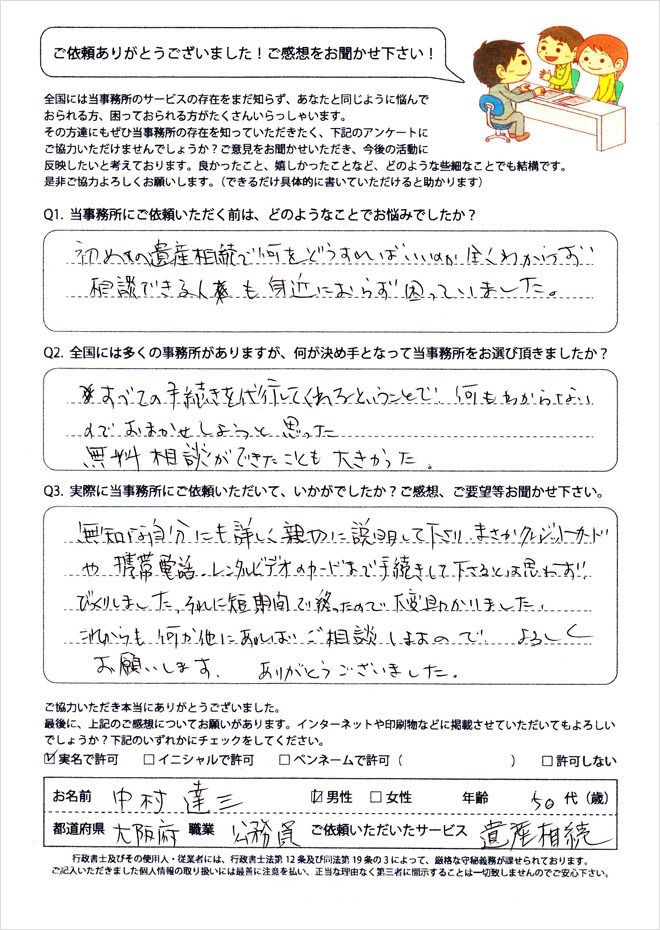 ご依頼ありがとうございました！ご感想をお聞かせ下さい！
全国には当事務所のサービスの存在をまだ知らず、あなたと同じように悩んで
おられる方、困っておられる方がたくさんいらっしゃいます。
その方達にもぜひ当事務所の存在を知っていただきたく、下記のアンケートに
ご協力いただけませんでしょうか？ご意見をお聞かせいただき、今後の活動に
反映したいと考えております。良かったこと、嬉しかったことなど、どのような些細なことでも結構です。
是非ご協力よろしくお願いします。（できるだけ具体的に書いていただけると助かります）
Q1. 当事務所にご依頼いただく前は、どのようなことでお悩みでしたか？
初めての遺産相続で何をどうすればいいのか全くわからず
相談できる人も身近におらず困っていました。
Q2. 全国には多くの事務所がありますが、何が決め手となって当事務所をお選び頂きましたか？
すべての手続きを代行してくれるということで、何もわからない
のでおまかせしようと思った
無料相談ができたことも大きかった。
Q3. 実際に当事務所にご依頼いただいて、いかがでしたか？ご感想、ご要望等お聞かせ下さい。
無知な自分にも詳しく親切に説明して下さり、まさかクレジットカード
や携帯電話、レンタルビデオのカードまで手続きして下さるとは思わず、
びっくりしました。それに短期間で終ったので大変助かりました。
これからも何か他にあればご相談しますので、よろしく
お願いします。 ありがとうございました。
ご協力いただき本当にありがとうございました。
最後に、上記のご感想についてお願いがあります。インターネットや印刷物などに掲載させていただいてもよろしい
でしょうか？下記のいずれかにチェックをしてください。
☑実名で許可 □イニシャルで許可 □ペンネームで許可（ ） □許可しない
お名前 中村 達三 ☑男性 □女性 年齢 50 代（歳）
都道府県 大阪府 職業 公務員 ご依頼いただいたサービス 遺産相続
行政書士及びその使用人・従業者には、行政書士法第12条及び同法第19条の3によって、厳格な守秘義務が課せられております。
ご記入いただきました個人情報の取り扱いには最善に注意を払い、正当な理由なく第三者に開示することは一切致しませんのでご安心下さい。